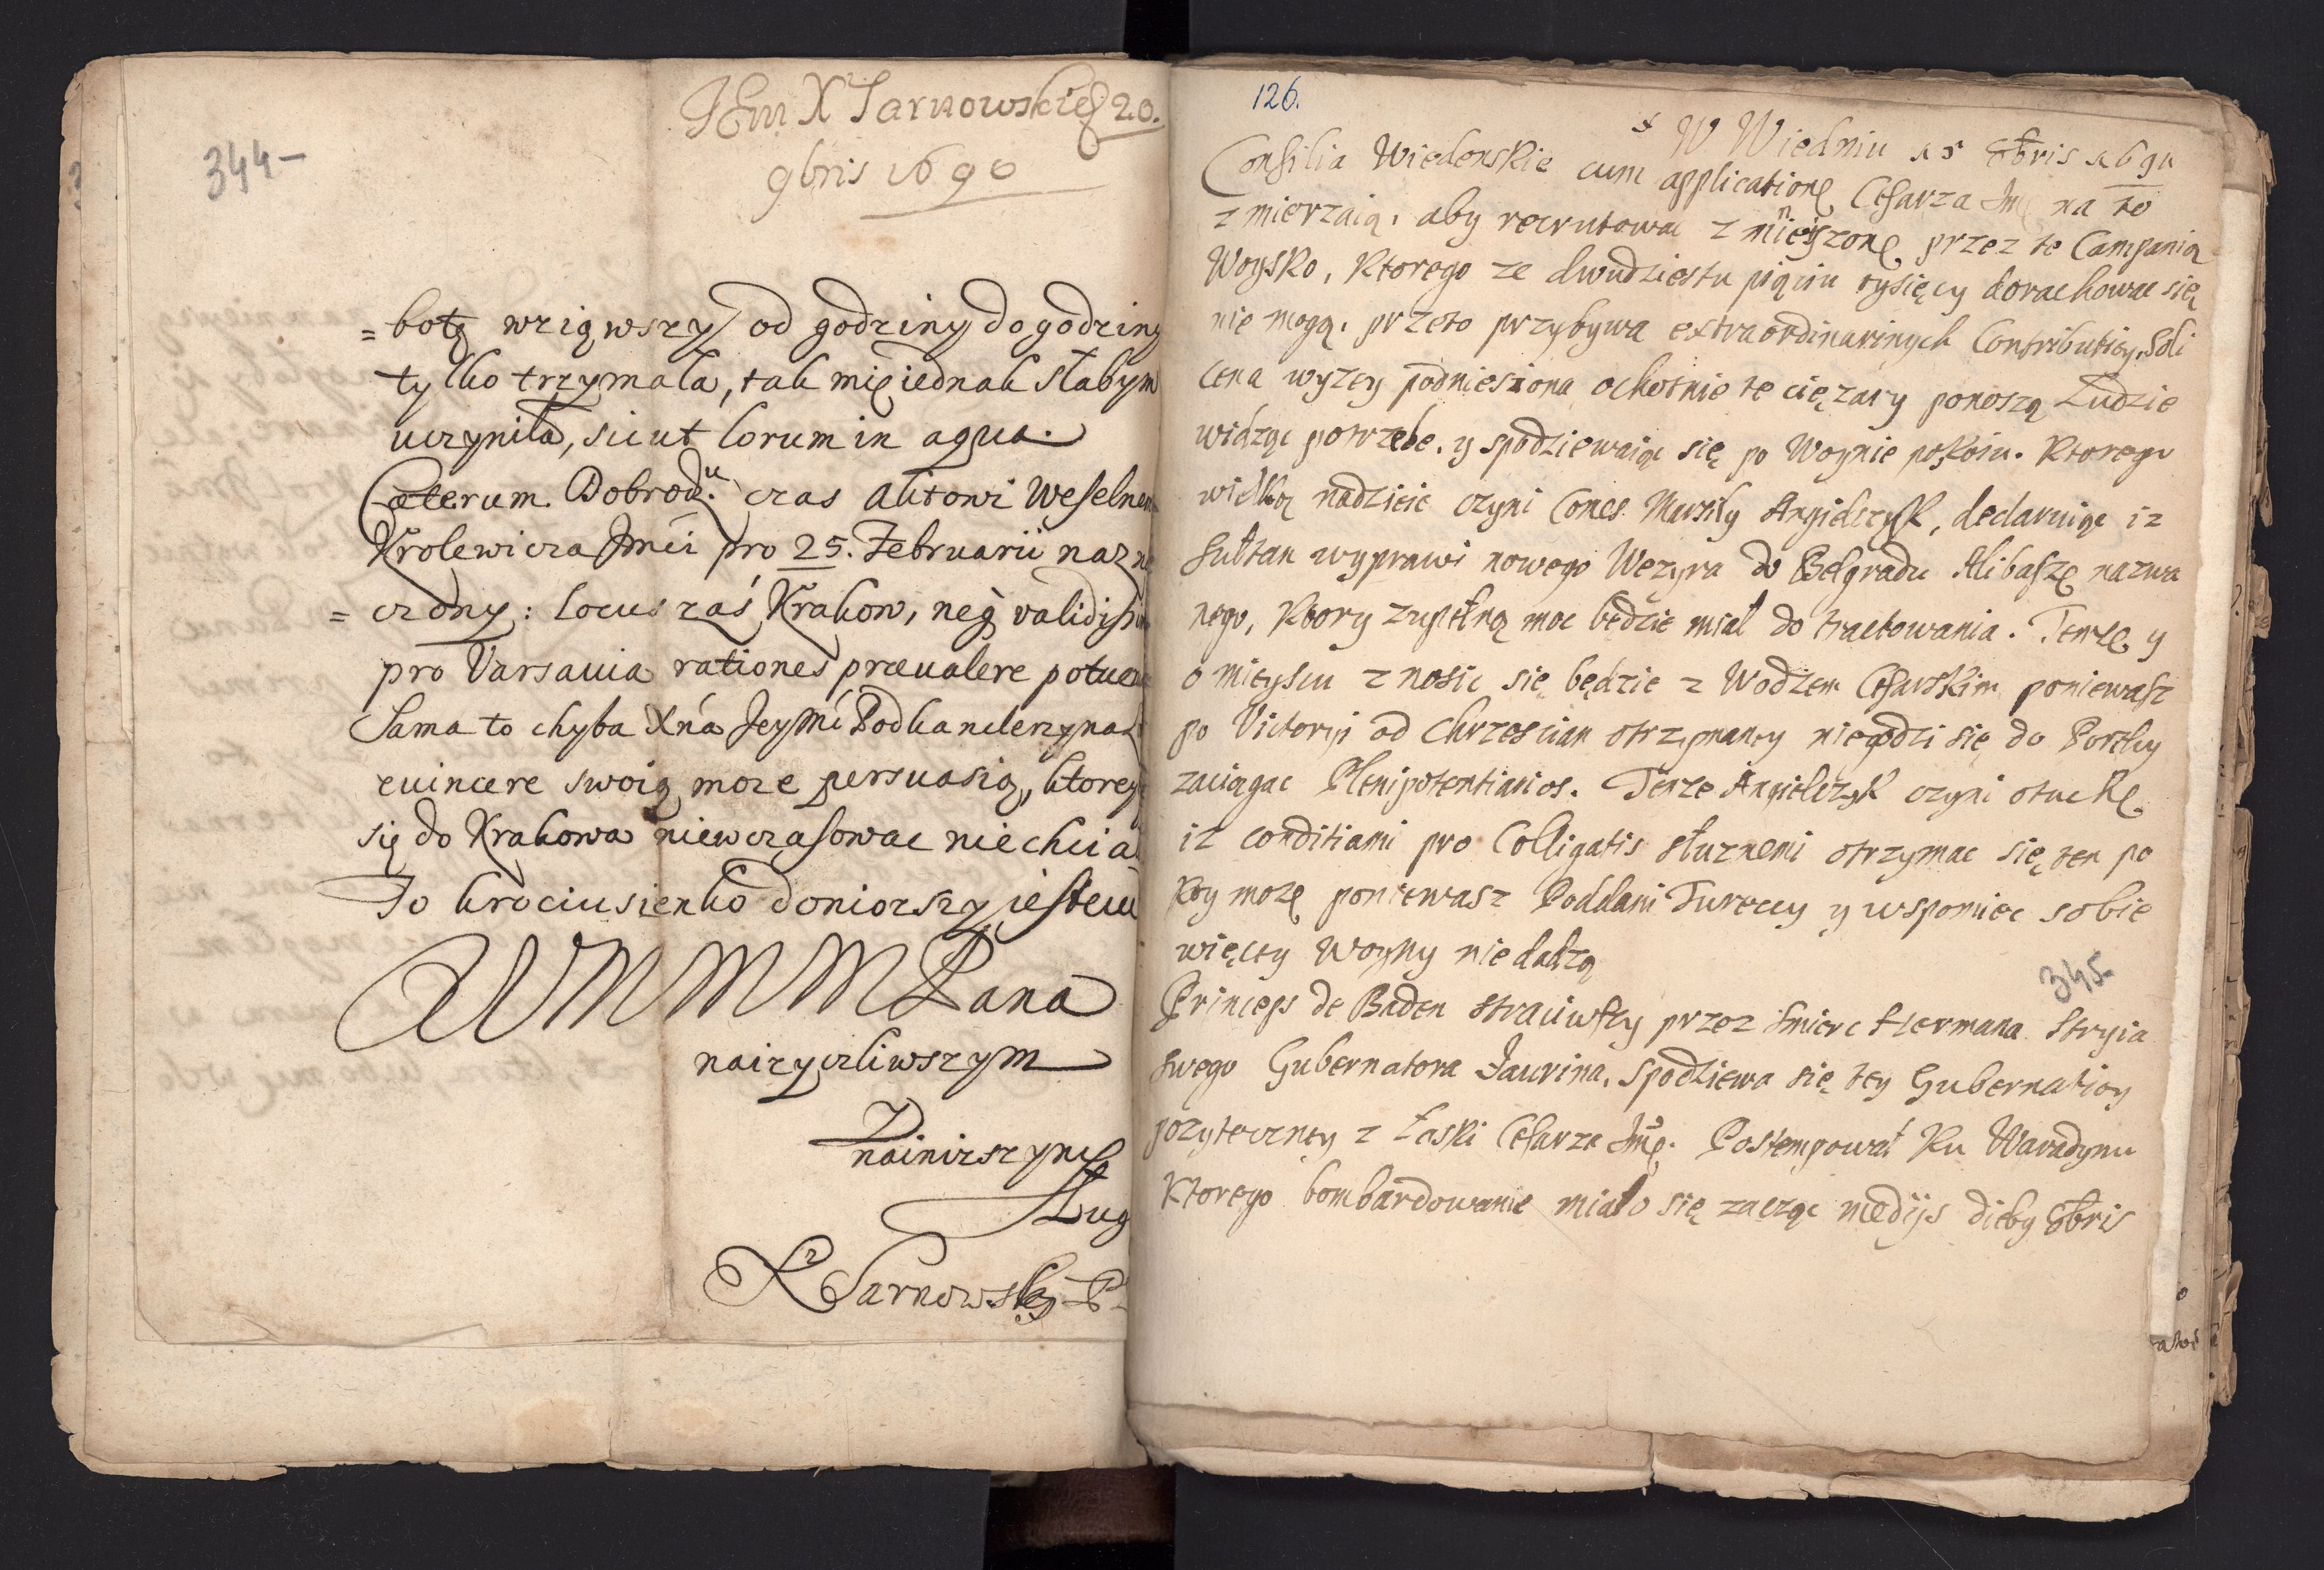 344-
JEm X Tarnowskieg 20.
9bris 1690
= botę wziąwszy od godziny do godziny
tylko trzymała, tak mię iednak słabym
uczyniła, sicut lorum in aqua.
Cæterum Dobrodu. czas aktowi Weselnem
Krolewicza Jmći pro 25. Februarii nazna
= czony: locus zaś Krakow, neq validissim
pro Varsavia rationes prævalere potue
Sama to chyba Xná Jeymć Podkanclerzyna
evincere swoią może persuasią, ktorey
się do Krakowa niewczasowac nie chcia
To krociusienko doniozszy iestem
WMMMPana
naizyczliwszym
y
nainizszym
sług
X Tarnowsky P
126.
W Wiedniu 15 8bris 1691
Consilia Wiedenskie cum applicationę Cesarza Jmę na to
zmierzaią, aby recrutowac zmnieyszonę przez te Campanią
Woysko, Ktorego ze dwudziestu piąciu tysięcy dorachowac się
nie mogą, przeto przybywa extraordinarinych Contributiy, Soli
cena wyzey podniesiona ochotnie te cięzary ponoszą Ludzie
widząc potrzebe, y spodziewaiąc się po Woynie pokoiu. Ktorego
wielką nadzieie czyni Comes Marsily Angielczyk, declaruiąc iz
Sułtan wyprawi nowego Wezyra do Belgradu Alibaszę nazwa
nego, Ktory zupełną moc będzie miał do tractowania. Tenze y
o mieyscu znosic się będzie z Wodzem Cesarskim poniewasz
po Victoryi od Chrzescian otrzymaney niegodzi się do Portky
zaciągac Plenipotentiarios. Tenze Angielczyk czyni otuchę
iz conditiami pro Colligatis słuznemi otrzymac się ten po
koy mozę poniewasz Poddani Tureccy y wspomiec sobie
więcey woyny niedadzą
345.
Princeps de Baden straciwszy przez smierc Hermana Stryia
swego Gubernatora Jaurina, spodziewa się tey Gubernatioy
pozyteczney z Łaski Cesarza Jmę. Postempował Ku Waradynu
Ktorego bombardowanie miało się zacząc medijs dieby 8bris